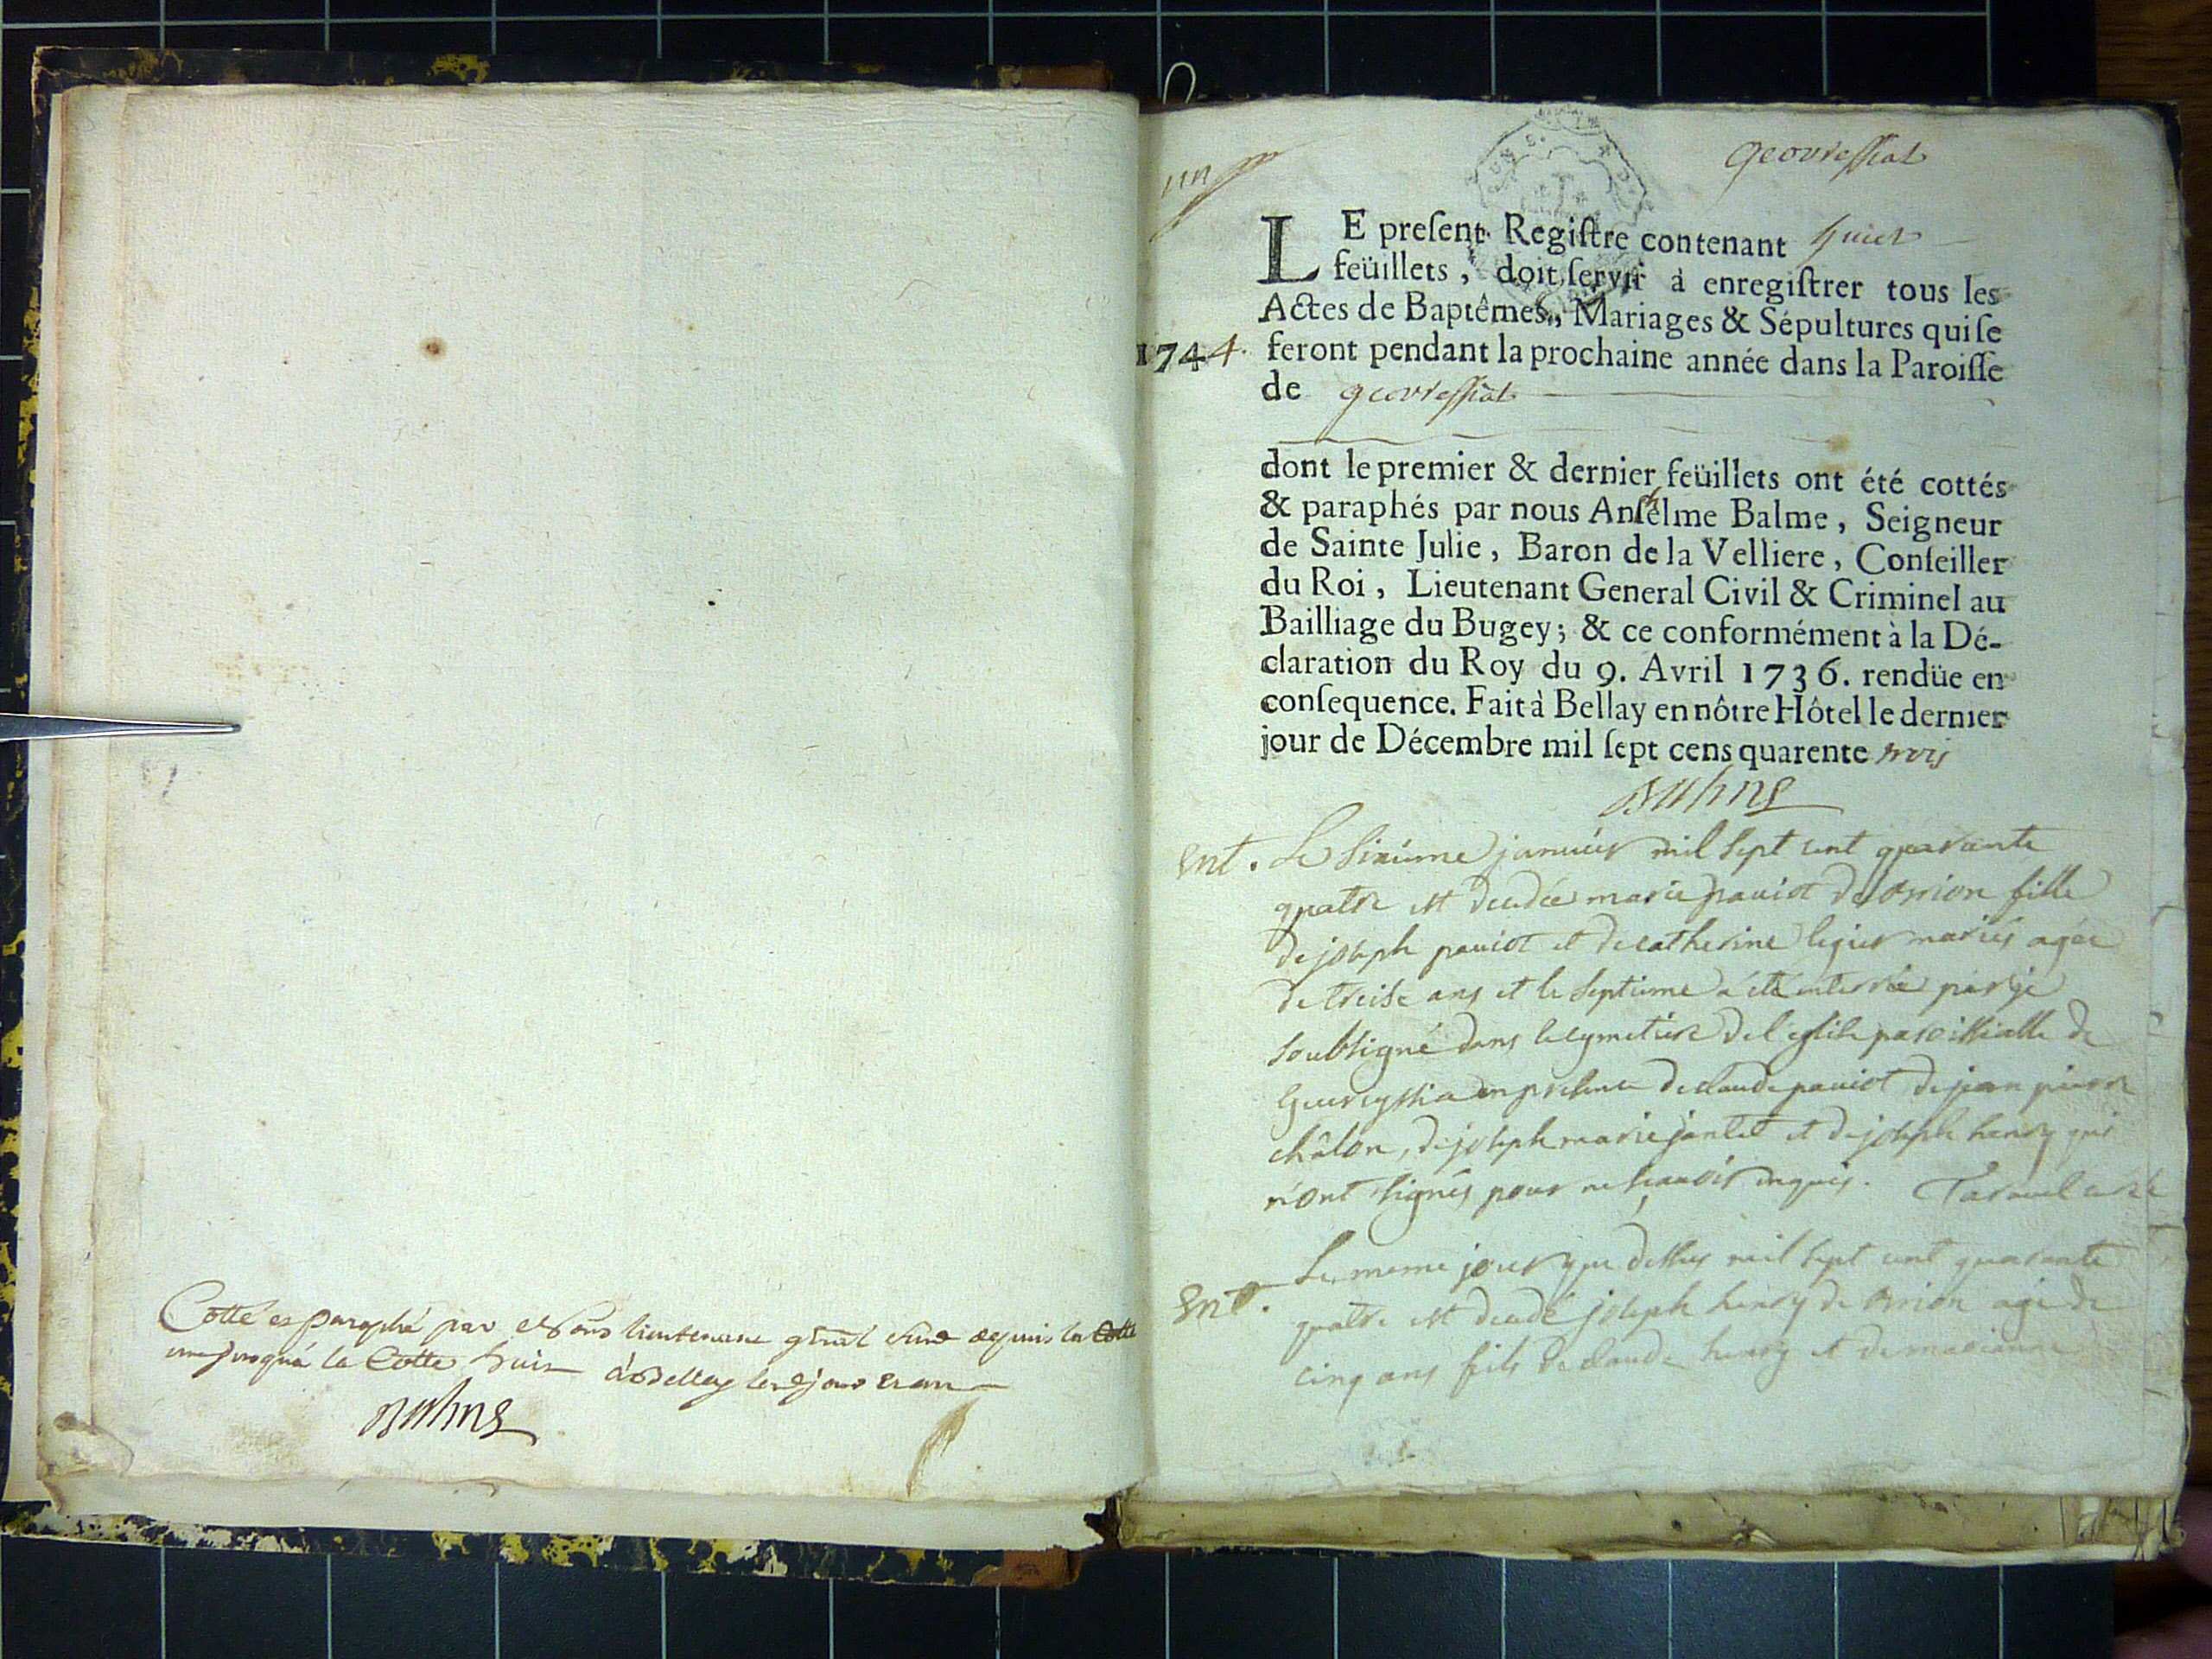 Cotté et paraphé par Nous lieutenant gñral civil depuis la Cotte
une jusqu'à la Cotte huit à Belley les jour et an
Balme
un
geovressiat
LE preſent Regiſtre contenant huict
feüillets, doit ſervir à enregiſtrer tous les
Actes de Baptêmes, Mariages & Sépultures qui ſe
1744. feront pendant la prochaine année dans la Paroiſſe
de geovressiat
dont le premier & dernier feüillets ont été cottés
& paraphés par nous Anſhelme Balme, Seigneur
de Sainte Julie, Baron de la Velliere, Conſeiller
du Roi, Lieutenant General Civil & Criminel au
Bailliage du Bugey; & ce conformément à la Dé-
claration du Roy du 9. Avril 1736. rendüe en
conſequence. Fait à Bellay en nôtre Hôtel le dernier
jour de Décembre mil ſept cens quarente trois
Balme
Ent. Le sixième janvier mil sept cent quarante
quatre est decedée marie paviot d'Ossion fille
de joseph paviot et de catherine legier mariés agée
de treise ans et le septième a été enterrée par je
soubsigné dans le cymetiere de l'eglise paroissialle de
en presence de claude paviot de jean pierre
châlon, de joseph marie jantet et de joseph henry qui
n'ont signés pour ne scavoir enquis. curé
Ent. Le meme jour que dessus mil sept cent quarante
quatre est decedé joseph henry d'Ossion agé de
cinq ans fils de claude henry et de marianne